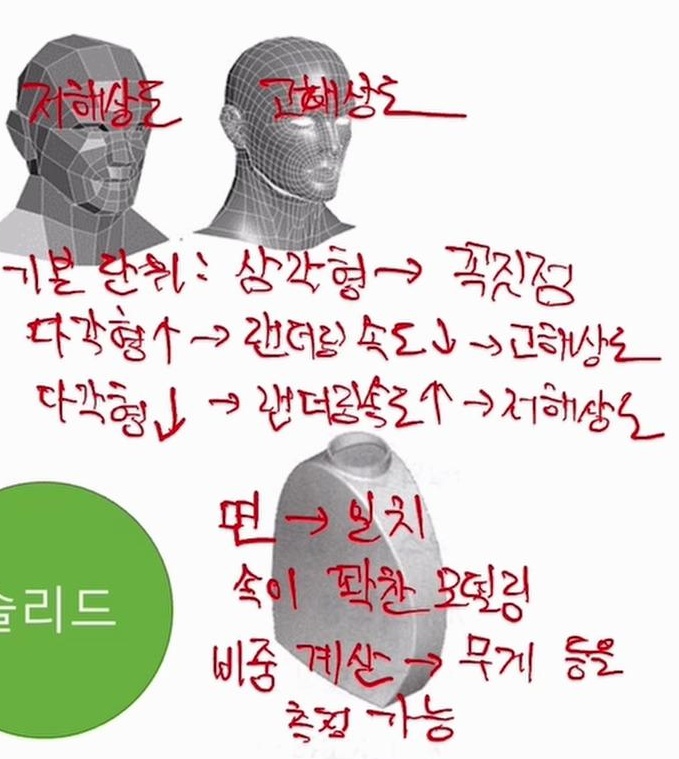 저해상도 고해상도
기본 단위: 삼각형→ 꼭짓점
다각형↑ → 랜더링 속도↓ →고해상도
다각형↓ → 랜더링속도↑ →저해상도
면 → 일치
슬리드
속이 꽉찬 모델링
비중 계산→ 무게 등을
측정 가능